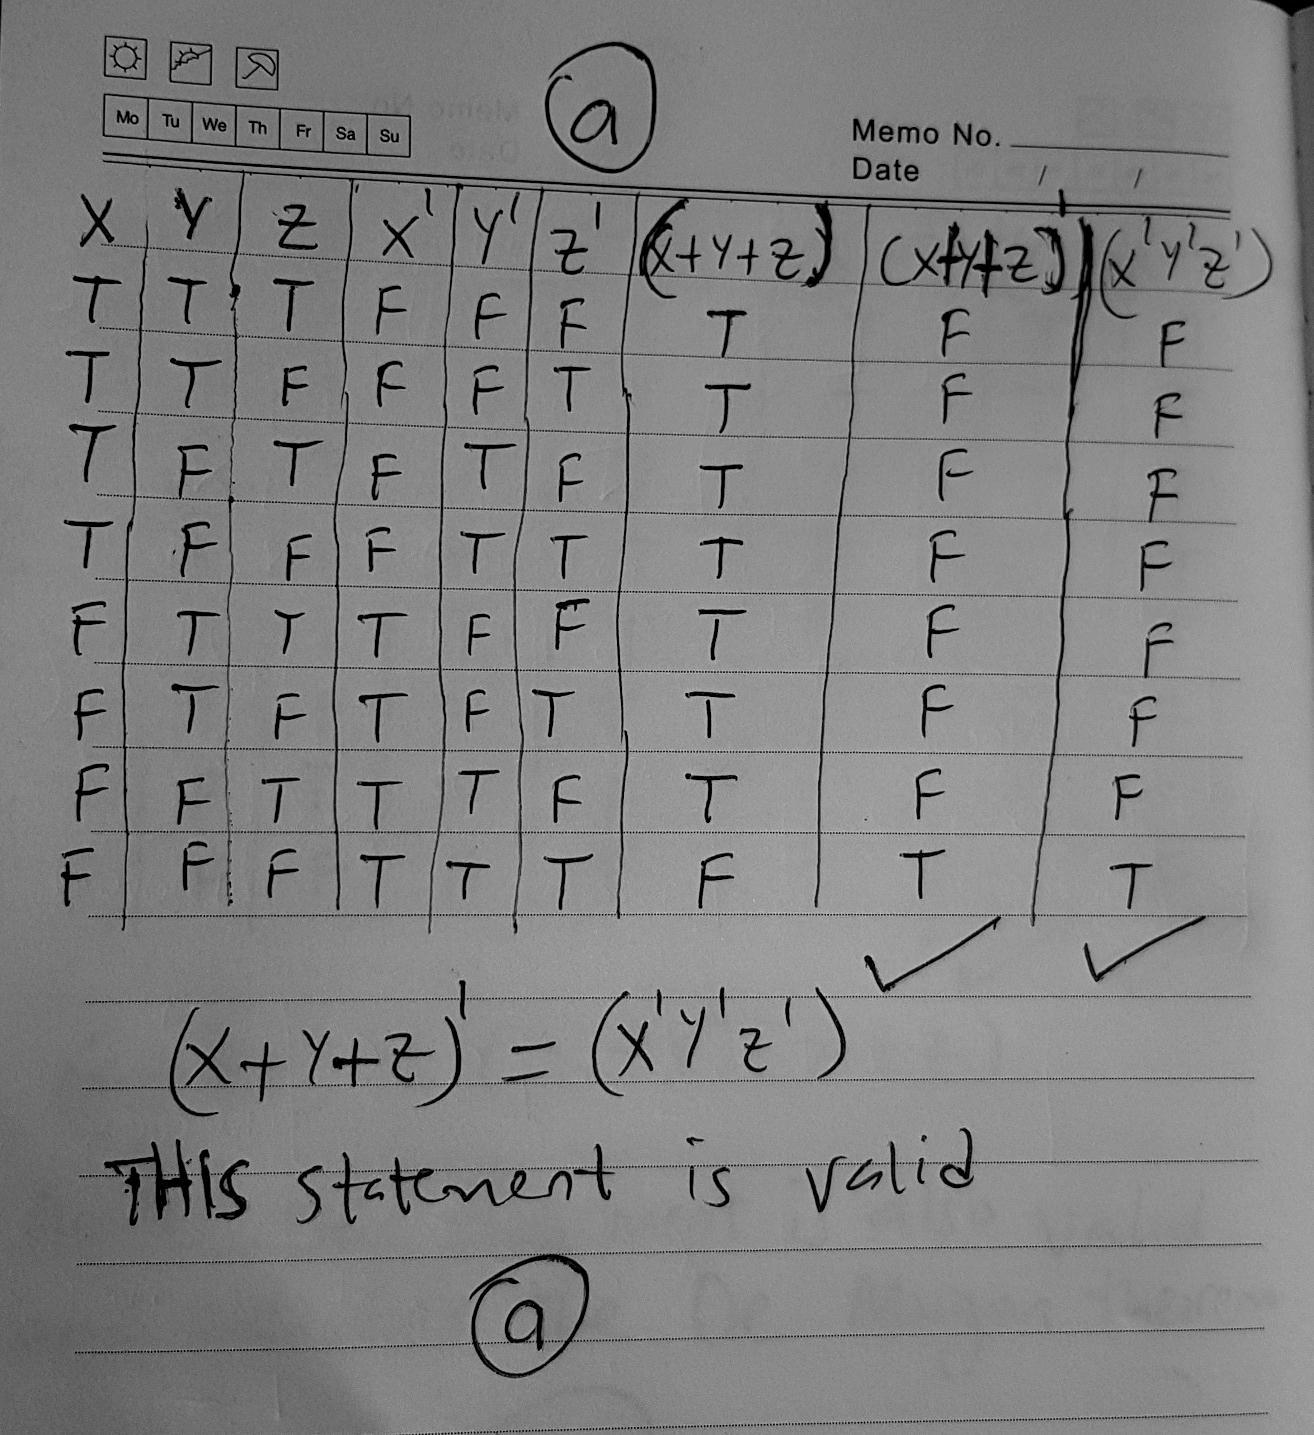 Mo Tu We Th Fr Sa Su
a
Memo No.
Date / /
X Y Z X' Y' Z' (X+Y+Z) (X+Y+Z)' (X'Y'Z')
T T T F F F T F F
T T F F F T T F F
T F T F T F T F F
T F F F T T T F F
F T T T F F T F F
F T F T F T T F F
F F T T T F T F F
F F F T T T F T T
(X+Y+Z)' = (X'Y'Z')
THIS statement is valid
a